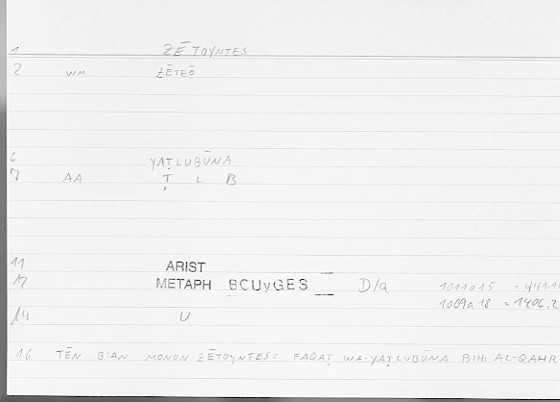 1 ZĒTOYNTES
2 WM ZĒTEŌ
6 YAṬLUBŪNA
7 AA Ṭ L B
11 ARIST
12 METAPH BOUyGES D/a 1011a15 =441.1
1069a18 =1406.2
14 U
16 TĒN BIAN MONON ZĒTOYNTES: FAQAṬ WA-YAṬLUBŪNA BIHI AL-QAHR